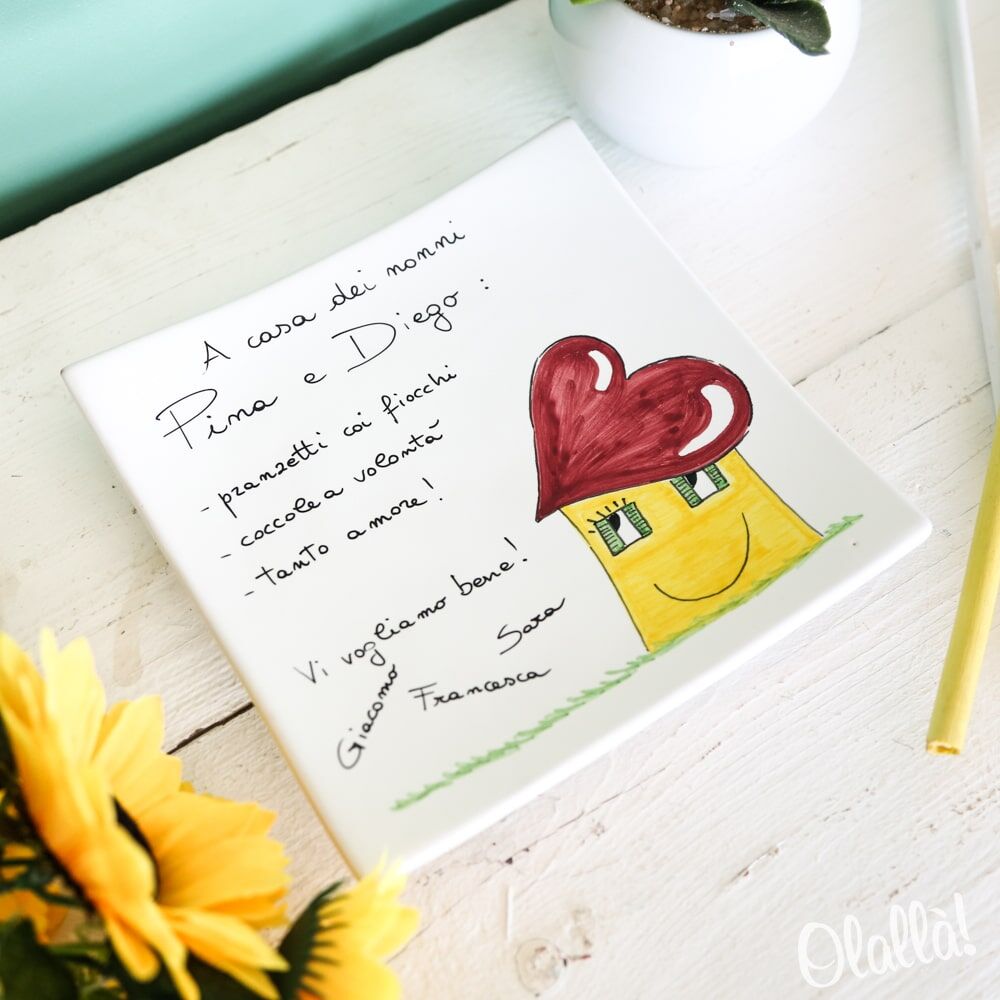 A casa dei nonni
Pina e Diego :
- pranzetti coi fiocchi
- coccole a volontà
- tanto amore!
Vi vogliamo bene!
Sara
Giacomo
Francesca
Olallà!